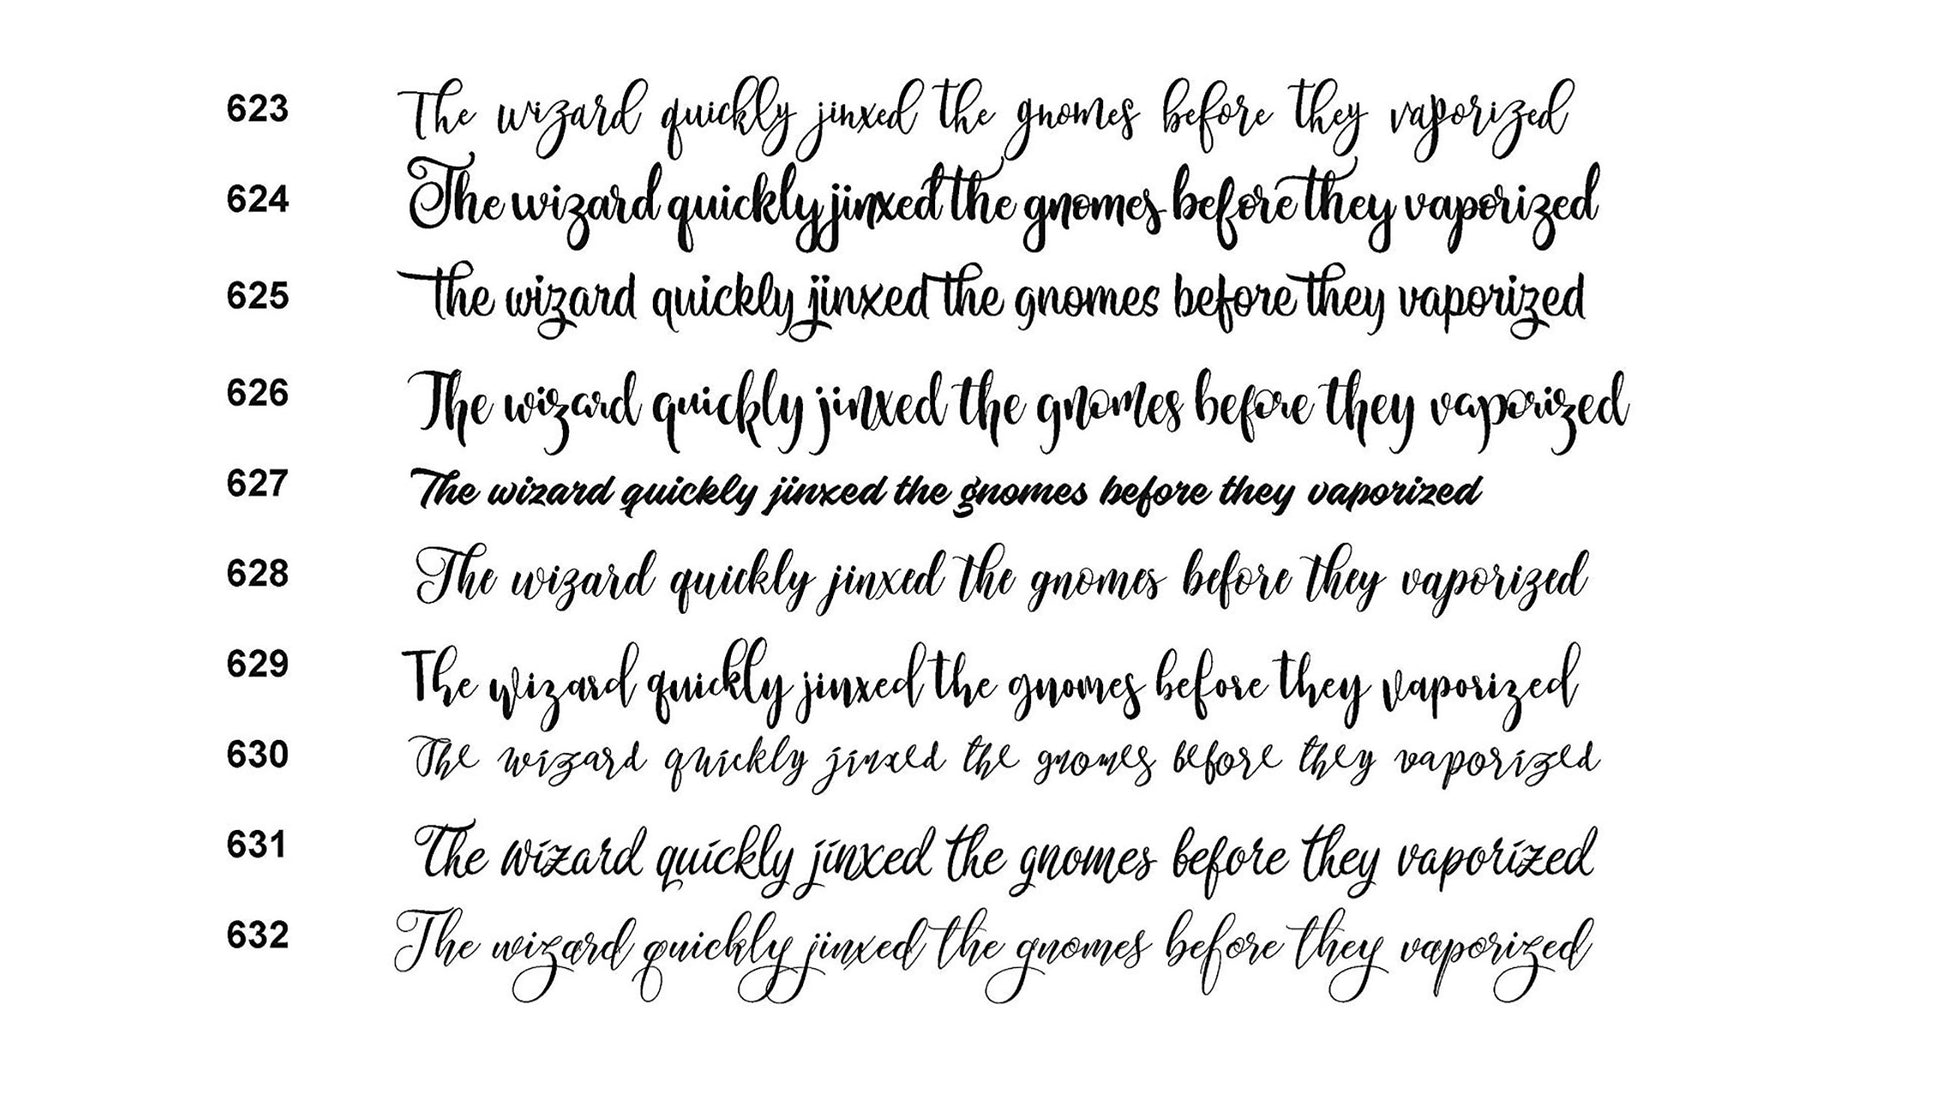 623 The wizard quickly jinxed the gnomes before they vaporized
624 The wizard quickly jinxed the gnomes before they vaporized
625 the wizard quickly jinxed the gnomes before they vaporized
626 The wizard quickly jinxed the gnomes before they vaporized
627 The wizard quickly jinxed the gnomes before they vaporized
628 The wizard quickly jinxed the gnomes before they vaporized
629 The wizard quickly jinxed the gnomes before they vaporized
630 The wizard quickly jinxed the gnomes before they vaporized
631 The wizard quickly jinxed the gnomes before they vaporized
632 The wizard quickly jinxed the gnomes before they vaporized